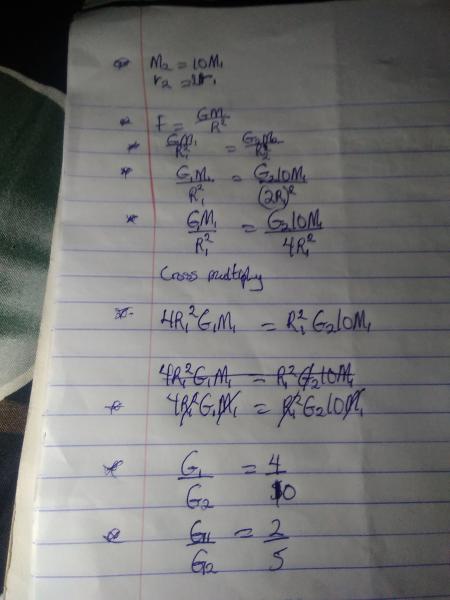 M₂ = 10M₁
r₂ = 2r₁
F = GM/R²
G₁M₁/R₁² = G₂M₂/R₂²
G₁M₁/R₁² = G₂10M₁/(2R₁)²
G₁M₁/R₁² = G₂10M₁/4R₁²
Cross multiply
4R₁²G₁M₁ = R₁²G₂10M₁
4R₁²G₁M₁ = R₁²G₂10M₁
4R₁²G₁M₁ = R₁²G₂10M₁
G₁/G₂ = 4/10
G₁/G₂ = 2/5